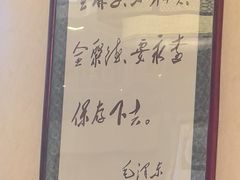 全聚德，要永远
保存下去。
毛泽东